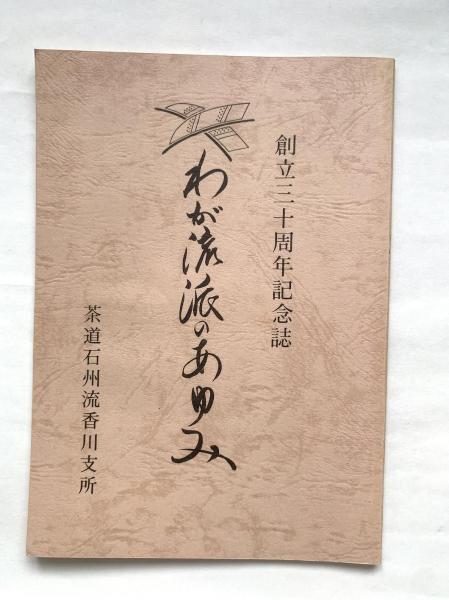 創立三十周年記念誌
わが流派のあゆみ
茶道石州流香川支所